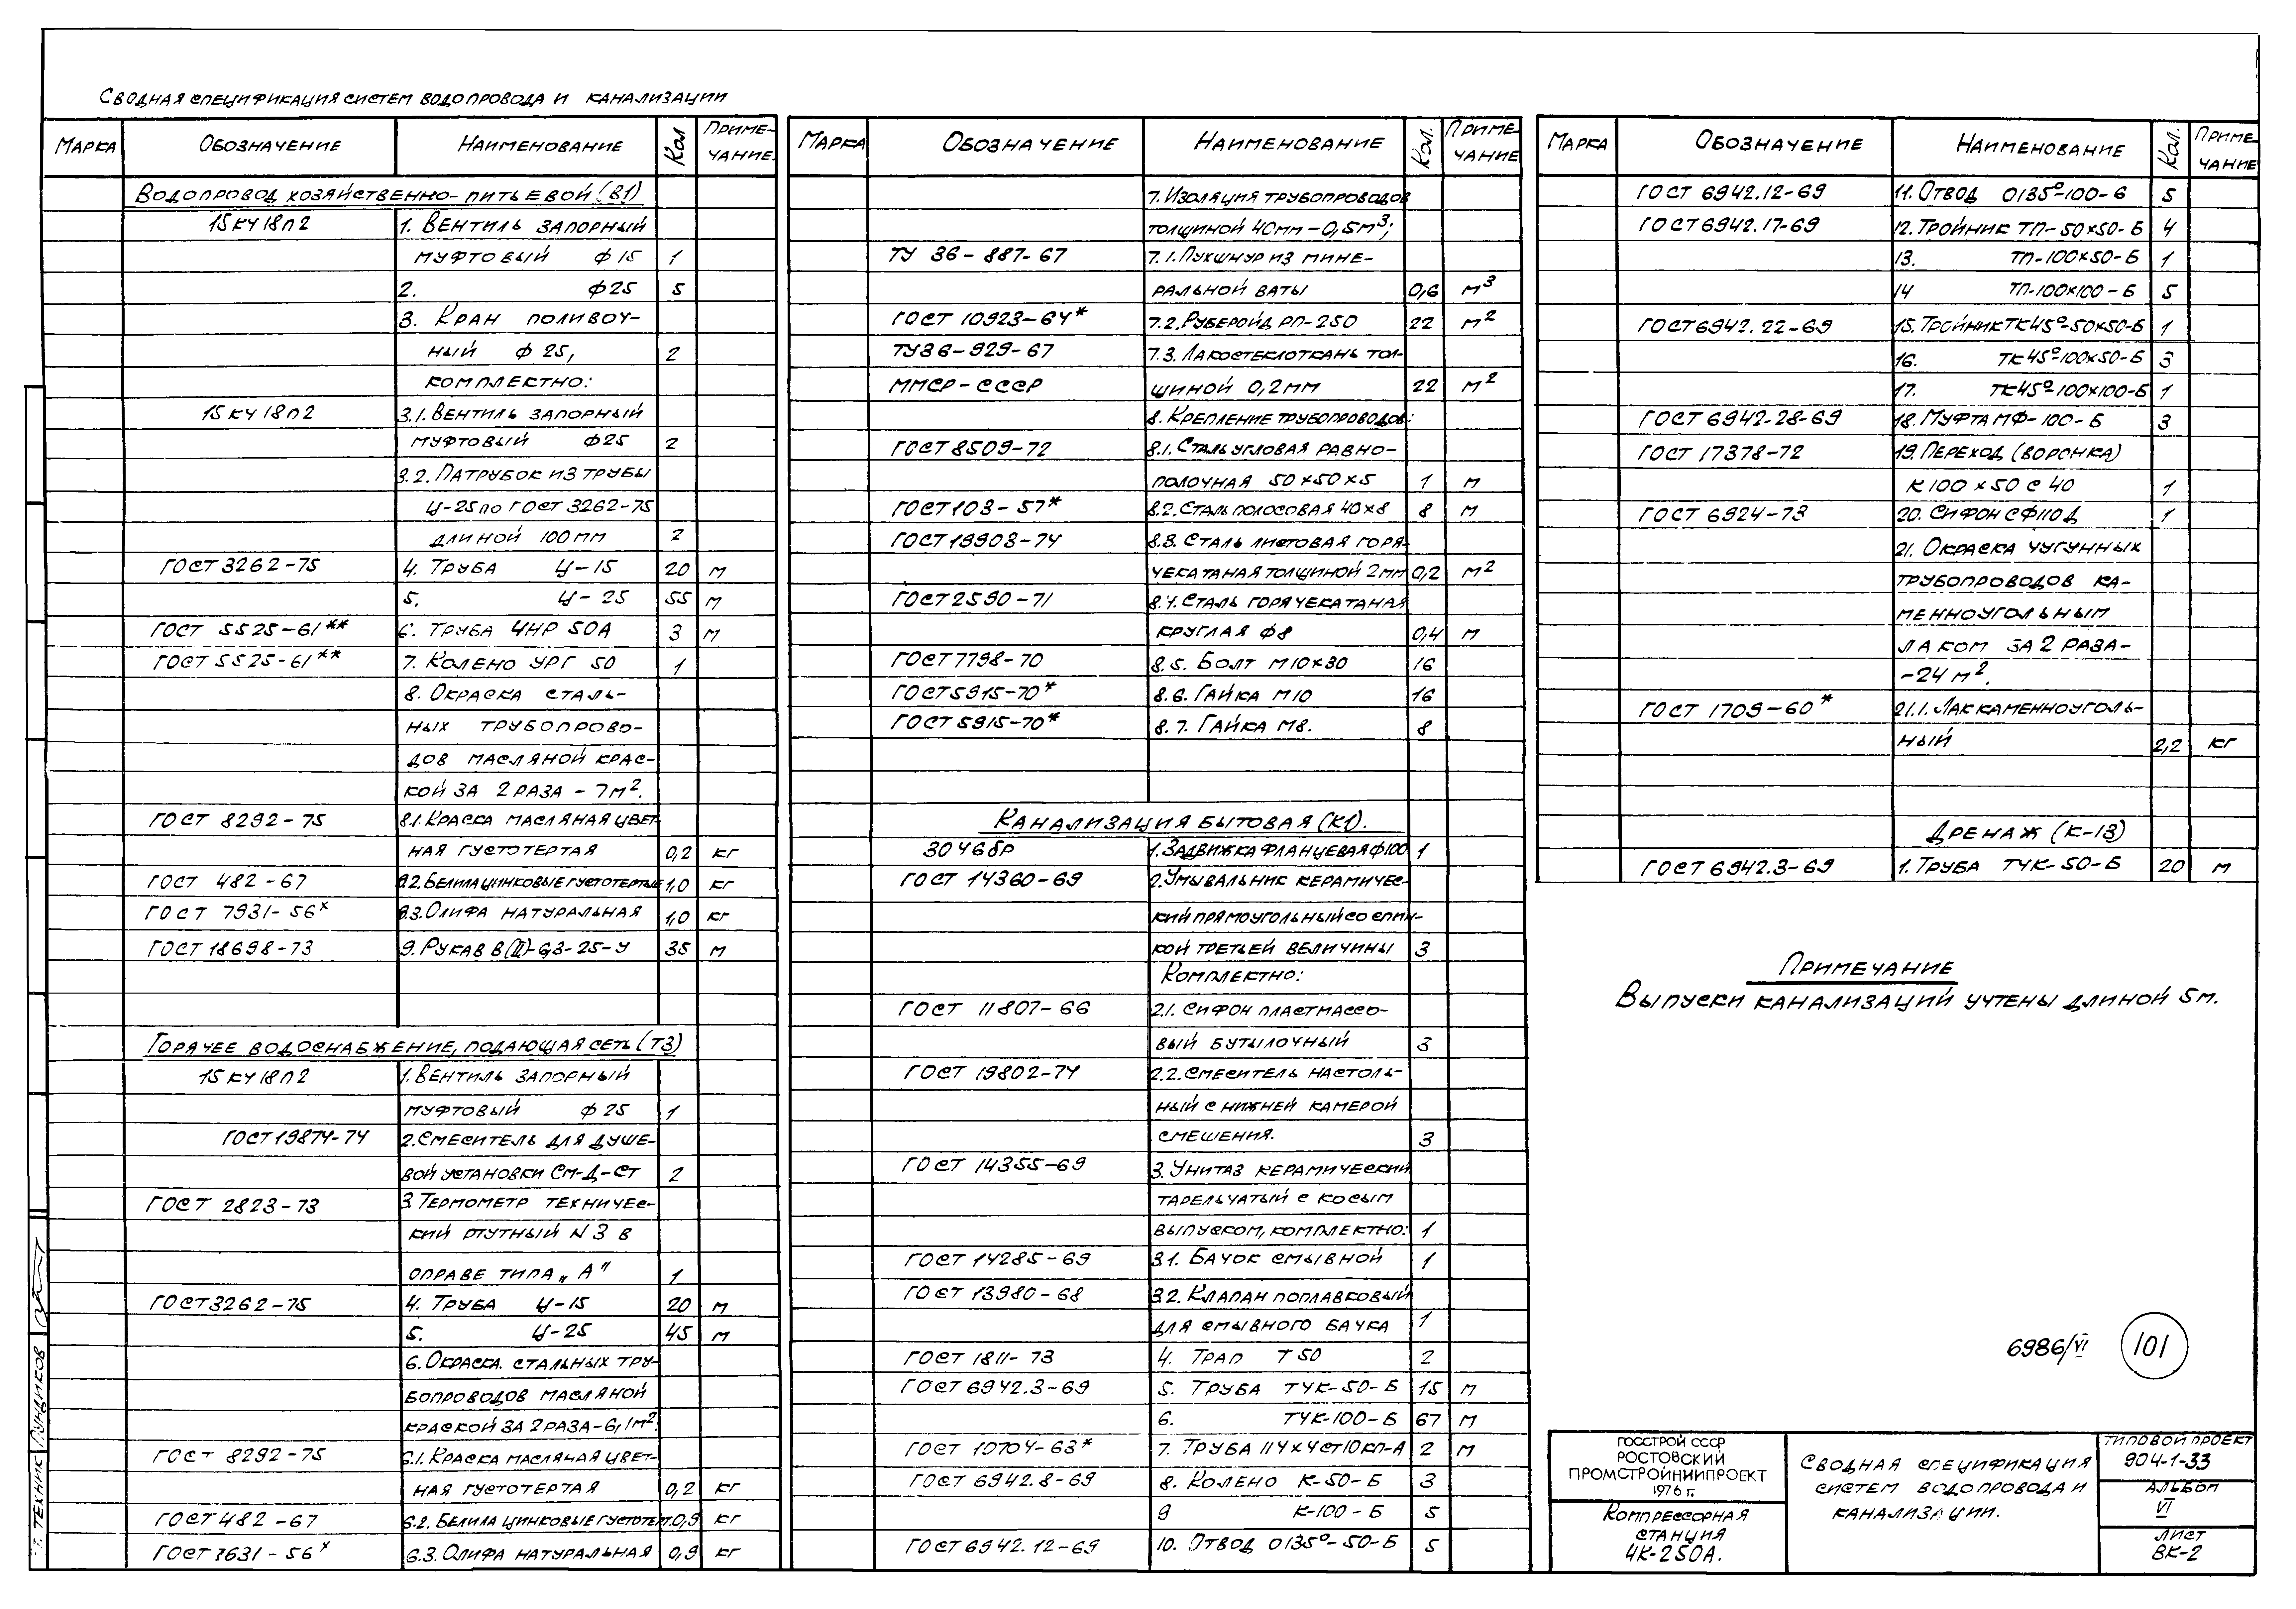 Сводная спецификация систем водопровода и канализации
Марка Обозначение Наименование Кол Приме-
чание
Водопровод хозяйственно-питьевой (В1)
15кч18п2 1. Вентиль запорный
муфтовый ф15 1
2. ф25 5
3. Кран поливоч-
ный ф25, 2
комплектно:
15кч18п2 3.1. Вентиль запорный
муфтовый ф25 2
3.2. Патрубок из трубы
Ц-25 по ГОСТ 3262-75
длиной 100мм 2
ГОСТ 3262-75 4. Труба Ц-15 20 м
5. Ц-25 55 м
ГОСТ 5525-61** 6. Труба ЧНР 50А 3 м
ГОСТ 5525-61** 7. Колено УРГ 50 1
8. Окраска сталь-
ных трубопрово-
дов масляной крас-
кой за 2 раза - 7м².
ГОСТ 8292-75 8.1. Краска масляная цвет-
ная густотертая 0,2 кг
ГОСТ 482-67 8.2. Белила цинковые густотертые 1,0 кг
ГОСТ 7931-56* 8.3. Олифа натуральная 1,0 кг
ГОСТ 18698-73 9. Рукав В(II)-6,3-25-У 35 м
Горячее водоснабжение, подающая сеть (Т3)
15кч18п2 1. Вентиль запорный
муфтовый ф25 1
ГОСТ 19874-74 2. Смеситель для душе-
вой установки См-Д-Ст 2
ГОСТ 2823-73 3. Термометр техничес-
кий ртутный N3 в
оправе типа „А" 1
ГОСТ 3262-75 4. Труба Ц-15 20 м
5. Ц-25 45 м
6. Окраска стальных тру-
бопроводов масляной
краской за 2 раза-6,1м².
ГОСТ 8292-75 6.1. Краска масляная цвет-
ная густотертая 0,2 кг
ГОСТ 482-67 6.2. Белила цинковые густотерт. 0,9 кг
ГОСТ 7631-56* 6.3. Олифа натуральная 0,9 кг
Марка Обозначение Наименование Кол. Приме-
чание
7. Изоляция трубопроводов
толщиной 40мм-0,5м³;
ТУ 36-887-67 7.1. Пухшнур из мине-
ральной ваты 0,6 м³
ГОСТ 10923-64* 7.2. Рубероид РП-250 22 м²
ТУ36-929-67 7.3. Лакостеклоткань тол-
ММСР-СССР щиной 0,2мм 22 м²
8. Крепление трубопроводов:
ГОСТ 8509-72 8.1. Сталь угловая равно-
полочная 50×50×5 1 м
ГОСТ 103-57* 8.2. Сталь полосовая 40×8 8 м
ГОСТ 19908-74 8.3. Сталь листовая горя-
чекатаная толщиной 2мм 0,2 м²
ГОСТ 2590-71 8.4. Сталь горячекатаная
круглая ф8 0,4 м
ГОСТ 7798-70 8.5. Болт М10×30 16
ГОСТ 5915-70* 8.6. Гайка М10 16
ГОСТ 5915-70* 8.7. Гайка М8. 8
Канализация бытовая (К1).
30ч6бр 1. Задвижка фланцевая ф100 1
ГОСТ 14360-69 2. Умывальник керамичес-
кий прямоугольный со спин-
кой третьей величины 3
Комплектно:
ГОСТ 11807-66 2.1. Сифон пластмассо-
вый бутылочный 3
ГОСТ 19802-74 2.2. Смеситель настоль-
ный с нижней камерой
смешения. 3
ГОСТ 14355-69 3. Унитаз керамический
тарельчатый с косым
выпуском, комплектно: 1
ГОСТ 14285-69 3.1. Бачок смывной 1
ГОСТ 13980-68 3.2. Клапан поплавковый
для смывного бачка 1
ГОСТ 1811-73 4. Трап Т50 2
ГОСТ 6942.3-69 5. Труба ТЧК-50-Б 15 м
6. ТЧК-100-Б 67 м
ГОСТ 10704-63* 7. Труба 114×4 ст10кп-А 2 м
ГОСТ 6942.8-69 8. Колено К-50-Б 3
9 К-100-Б 5
ГОСТ 6942.12-69 10. Отвод О135°-50-Б 5
Марка Обозначение Наименование Кол. Приме-
чание
ГОСТ 6942.12-69 11. Отвод О135°-100-б 5
ГОСТ 6942.17-69 12. Тройник ТП-50×50-Б 4
13. ТП-100×50-Б 1
14 ТП-100×100-Б 5
ГОСТ 6942.22-69 15. Тройник ТК45°-50×50-Б 1
16. ТК45°-100×50-Б 3
17. ТК45°-100×100-Б 1
ГОСТ 6942-28-69 18. Муфта МФ-100-Б 3
ГОСТ 17378-72 19. Переход (воронка)
К 100×50 С 40 1
ГОСТ 6924-73 20. Сифон СФ110Д 1
21. Окраска чугунных
трубопроводов ка-
менноугольным
лаком за 2 раза-
-24 м².
ГОСТ 1709-60* 21.1. Лак каменноуголь-
ный 2,2 кг
Дренаж (К-13)
ГОСТ 6942.3-69 1. Труба ТЧК-50-Б 20 м
Примечание
Выпуски канализаций учтены длиной 5м.
6986/VI 101
Госстрой СССР
Ростовский
Промстройниипроект
1976 г.
Компрессорная
станция
4К-250А.
Сводная спецификация
систем водопровода и
канализации.
Типовой проект
904-1-33
Альбом
VI
Лист
ВК-2
Ст. техник Лундиков